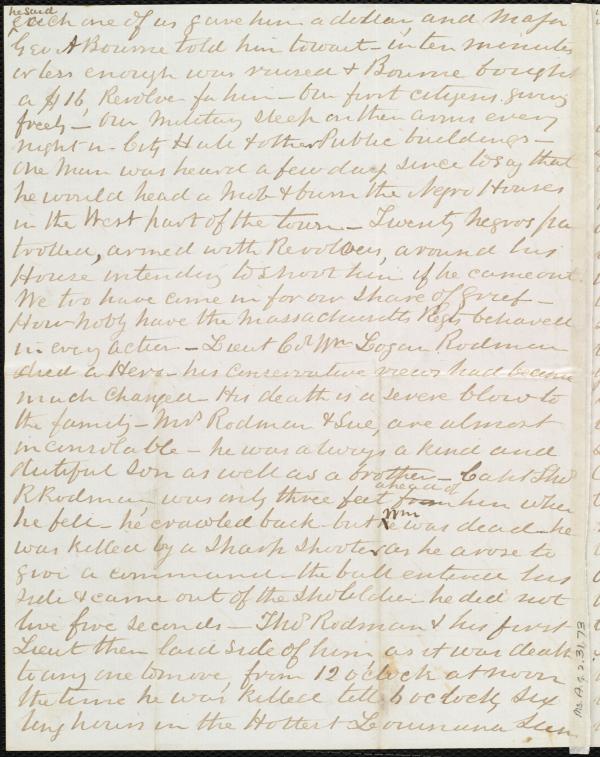 he said
each one of us gave him a dollar, and Major
Geo A Bourne told him to wait - in ten minutes
or less enough was raised & Bourne bought
a $16, Revolver for him - Our first citizens giving
freely - Our Military sleep on their arms every
night in City Hall & other Public buildings -
One Man was heard a few days since to say that
he would head a Mob & burn the Negro Houses
in the West part of the town - Twenty Negros pa
trolled, armed with Revolvers, around his
House intending to shoot him if he came out.
We too have come in for our share of Grief -
How nobly have the Massachusetts Regts behaved
in every action - Lieut Col Wm Logan Rodman
died a Hero - his conservative views had become
much changed - His death is a severe blow to
the family - Mrs Rodman & Sue, are almost
inconsolable - he was always a kind and
dutiful Son as well as a brother - Capt Thos
ahead of
R Rodman was only three feet from him when
Wm
he fell - he crawled back but he was dead - he
was killed by a Sharp Shooter as he arose to
give a command - the ball entered his
side & came out of the shoulder he did not
live five seconds - Thos Rodman & his first
Lieut then laid side of him as it was death
to any one to move, from 12 o'clock at noon
the time he was killed till 6 o'clock, six
long hours in the Hottest Louisiana Sun
Ms.A.9.2.31.73